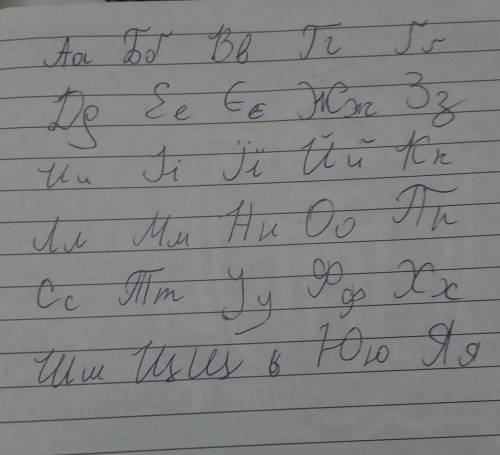 Аа Бб Вв Гг Ґґ
Дд Ее Єє Жж Зз
Ии Іі Її Йй Кк
Лл Мм Нн Оо Пп
Сс Тт Уу Фф Хх
Шш ЩщЩ ь Юю Яя